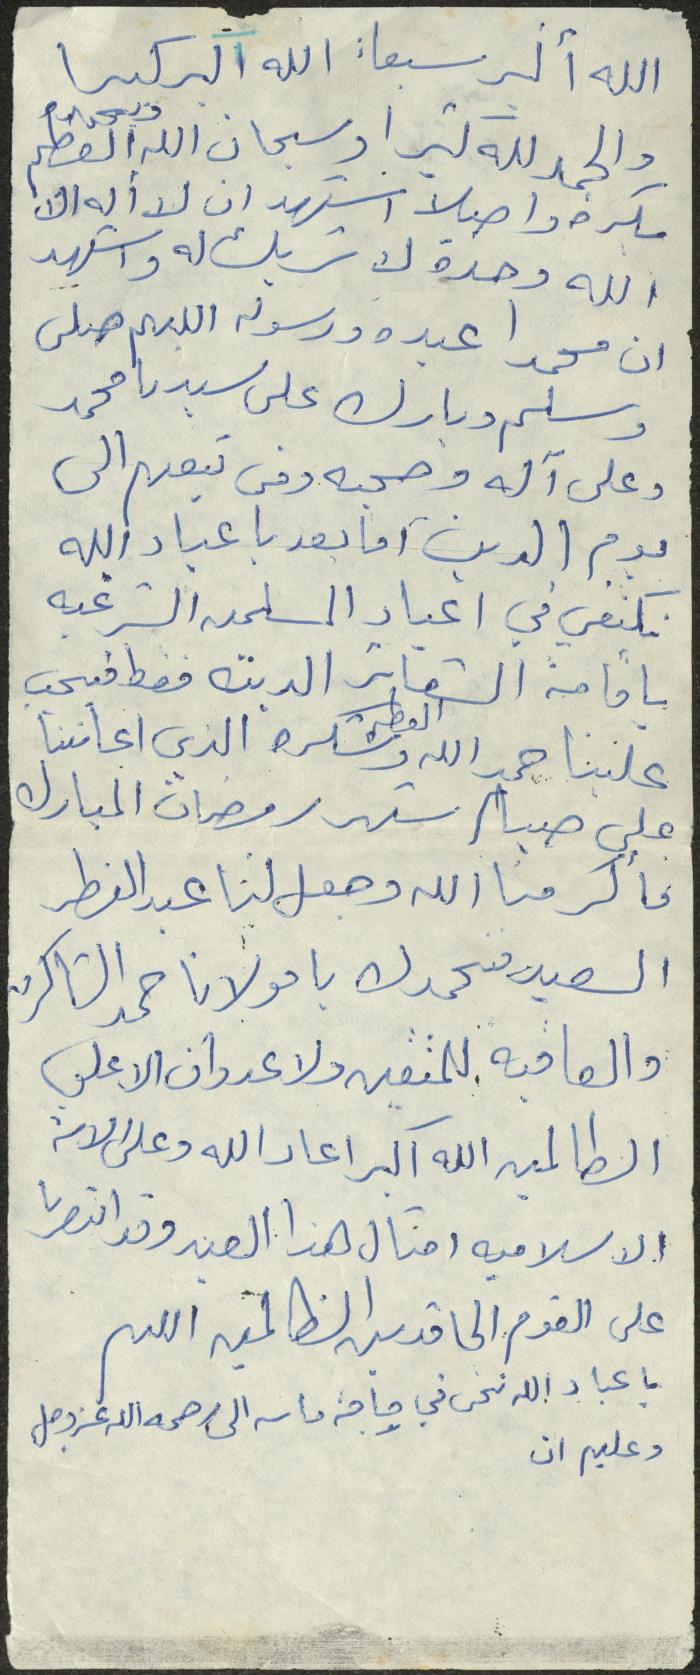 الله أكبر سبعاً الله اكبر كبيرا
والحمد لله كثيرا وسبحان الله العظيم وبحمده
بكرة واصيلا اشهد ان لا أله الا
الله وحدة لا شريك له واشهد
ان محمدا عبده ورسوله اللهم صلى
وسلم وبارك على سيدنا محمد
وعلى آله وصحبه ومن تبعهم الى
يوم الدين آما بعد يا عباد الله
نكتفي في اعياد المسلمين الشرعيه
باقامة الشعائر الدينه فقط فيجب
علينا حمد الله العظيم وشكره الذي اعاننا
على صيام شهر رمضان المبارك
فأكرمنا الله وجعل لنا عيد الفطر
السعيد فنحمدك يا مولانا حمد الشاكرين
والعاقبه للمتقين ولا عدوان الا على
الظالمين الله آكبر اعاد الله وعلى الامة
الاسلاميه امثال هذا العيد وقد انتصرنا
على القوم الحاقدين الظالمين اللهم
يا عباد الله نحن في حاجة ماسه الى رحمه الله عز وجل
وعليهم ان